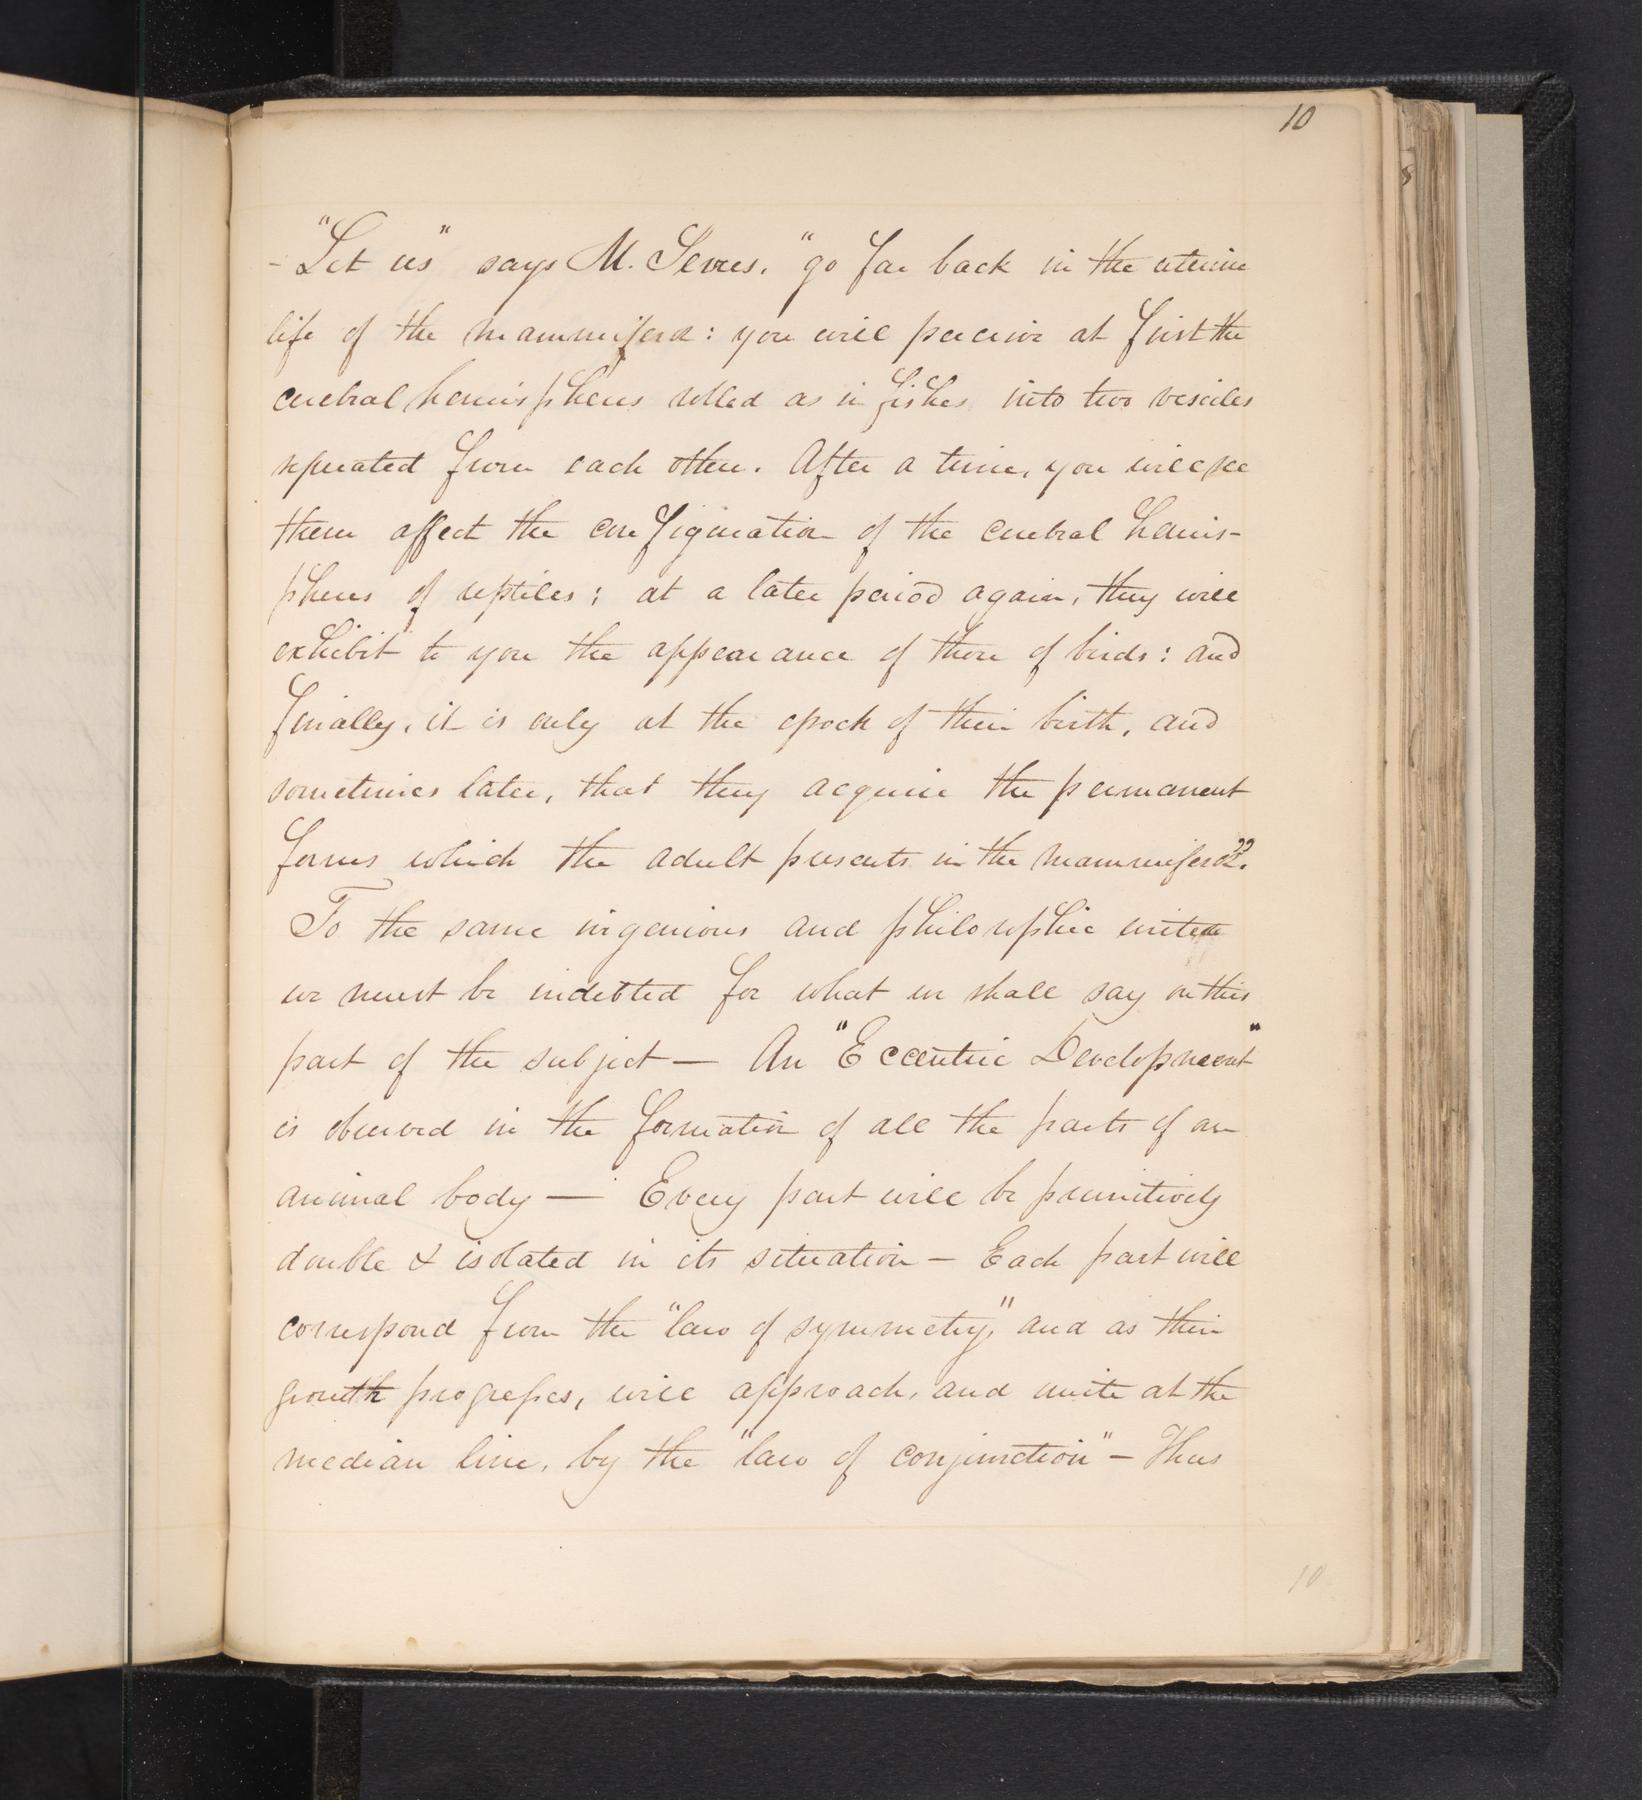 10
- "Let us" says M. Serres. "go far back in the uterine
life of the mammifera: you will perceive at first the
cerebral hemispheres rolled as in fishes into two vesicles
seperated from each other. After a time, you will see
them affect the configuration of the cerebral hemis-
pheres of reptiles; at a later period again, they will
exhibit to you the appearance of those of birds: and
finally, it is only at the epoch of their birth, and
sometimes later, that they acquire the permanent
forms which the adult presents in the mammifera."
To the same ingenious and philosophic writer
we must be indebted for what we shall say on this
part of the subject — An "Eccentric Development"
is observed in the formation of all the parts of an
animal body — Every part will be primitively
double & isolated in its situation — Each part will
correspond from the "law of symmetry," and as their
growth progresses, will approach, and unite at the
median line, by the "law of conjunction" — Thus
10